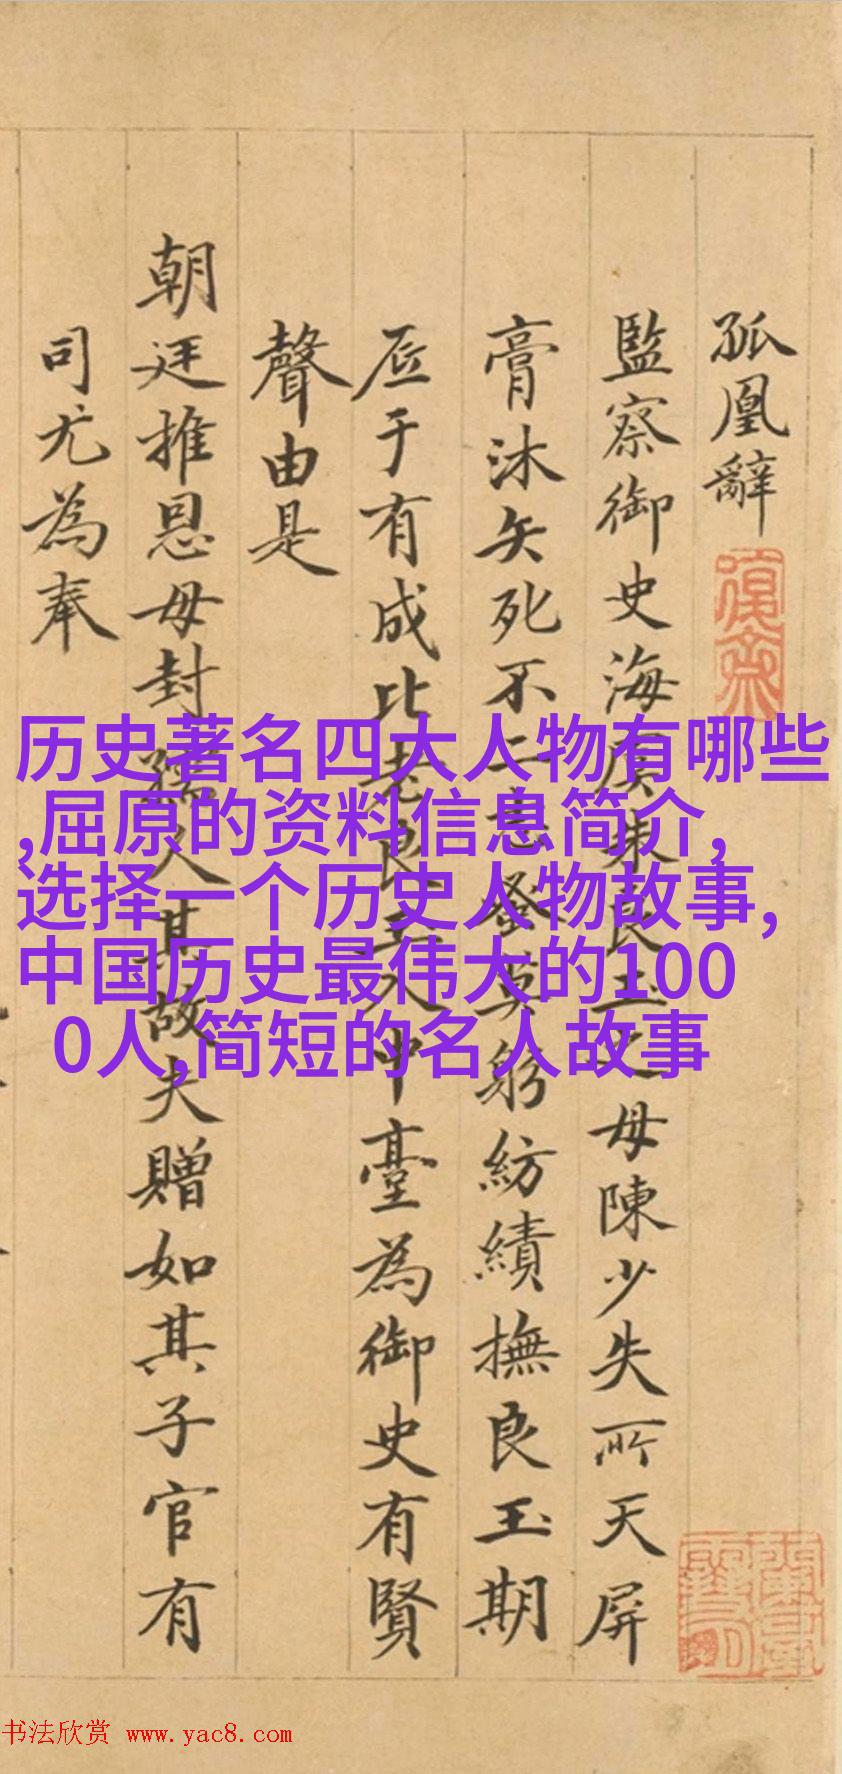 孤凰辭
監察御史海虞朱良玉之母陳少失所天屏
膏沐矢死不二志蚤莫躬紡績撫良玉期
厎于有成比老良玉入中臺為御史有賢
聲由是
朝廷推恩母封孺人其故夫贈如其子官有
司尤為奉
历史著名四大人物有哪些
,屈原的资料信息简介,
选择一个历史人物故事,
中国历史最伟大的100
0人,简短的名人故事
书法欣赏 www.yac8.com